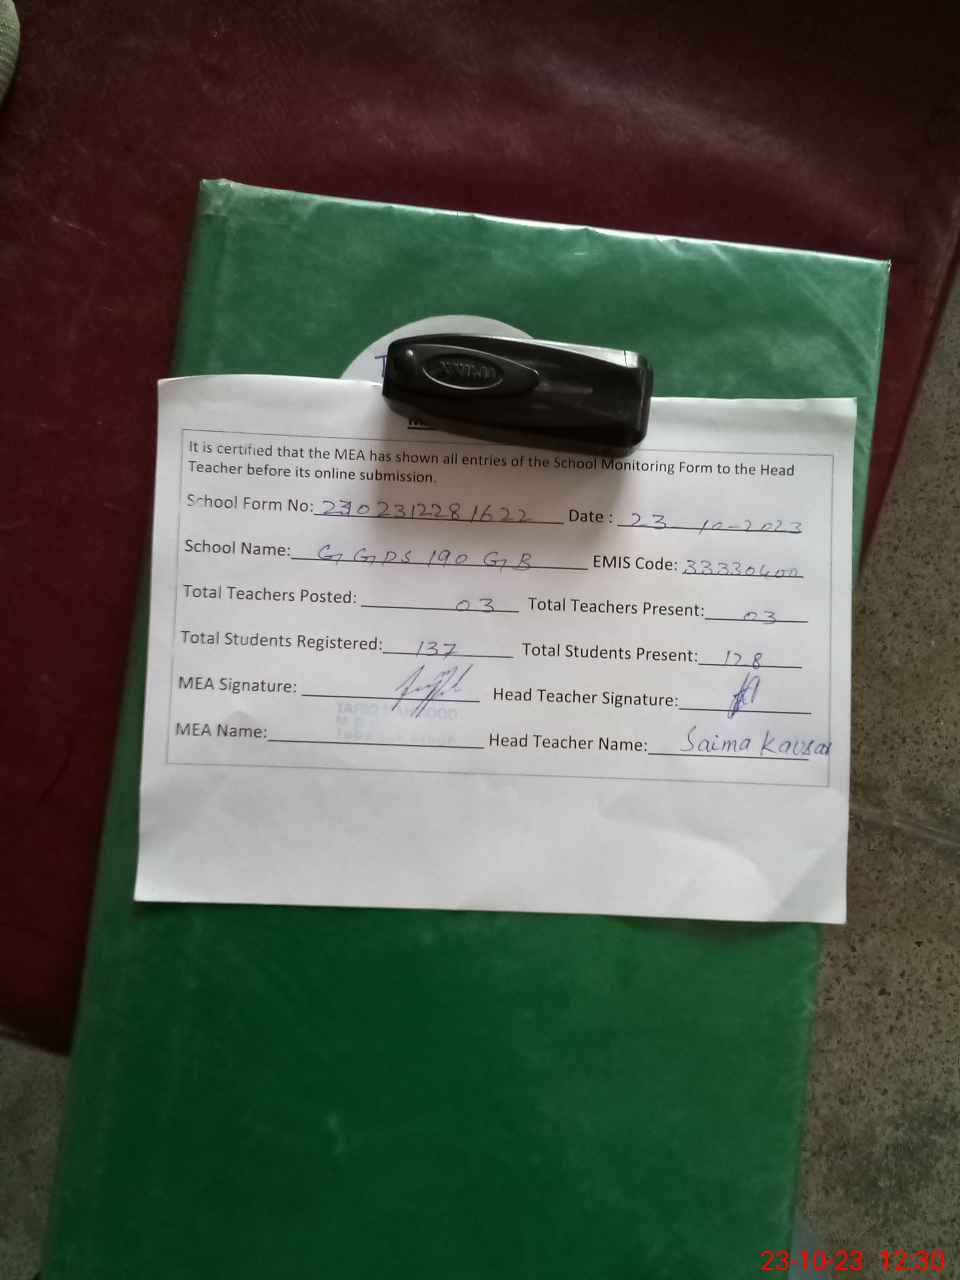 It is certified that the MEA has shown all entries of the School Monitoring Form to the Head
Teacher before its online submission.
School Form No: 2310231228 1622 Date : 23 10-2023
School Name: GGPS 190 GB EMIS Code: 33330400
Total Teachers Posted: 03 Total Teachers Present: 03
Total Students Registered: 137 Total Students Present: 128
MEA Signature: Head Teacher Signature:
MEA Name: Head Teacher Name: Saima Kausar
23-10-23 12:30